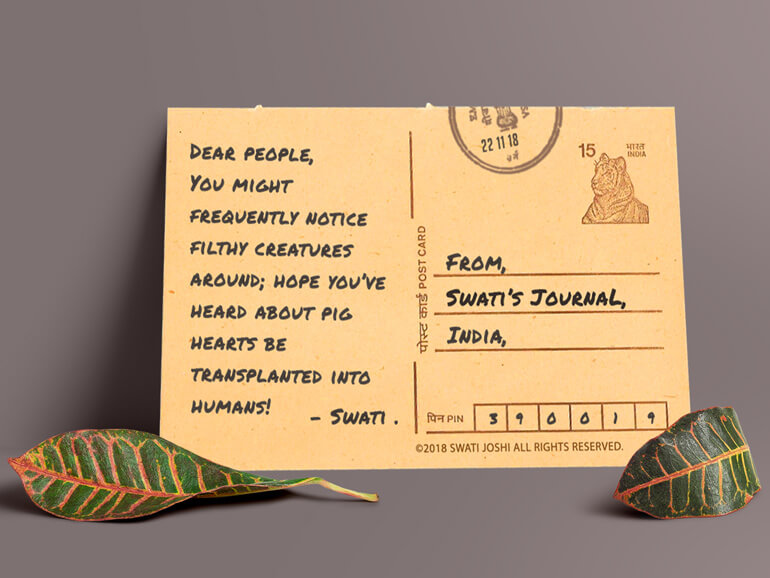 DEAR PEOPLE,
YOU MIGHT
FREQUENTLY NOTICE
FILTHY CREATURES
AROUND; HOPE YOU'VE
HEARD ABOUT PIG
HEARTS BE
TRANSPLANTED INTO
HUMANS!
- SWATI .
पोस्ट कार्ड POST CARD
22 11 18
15 भारत
INDIA
FROM,
SWATI'S JOURNAL,
INDIA,
पिन PIN 3 9 0 0 1 9
©2018 SWATI JOSHI ALL RIGHTS RESERVED.